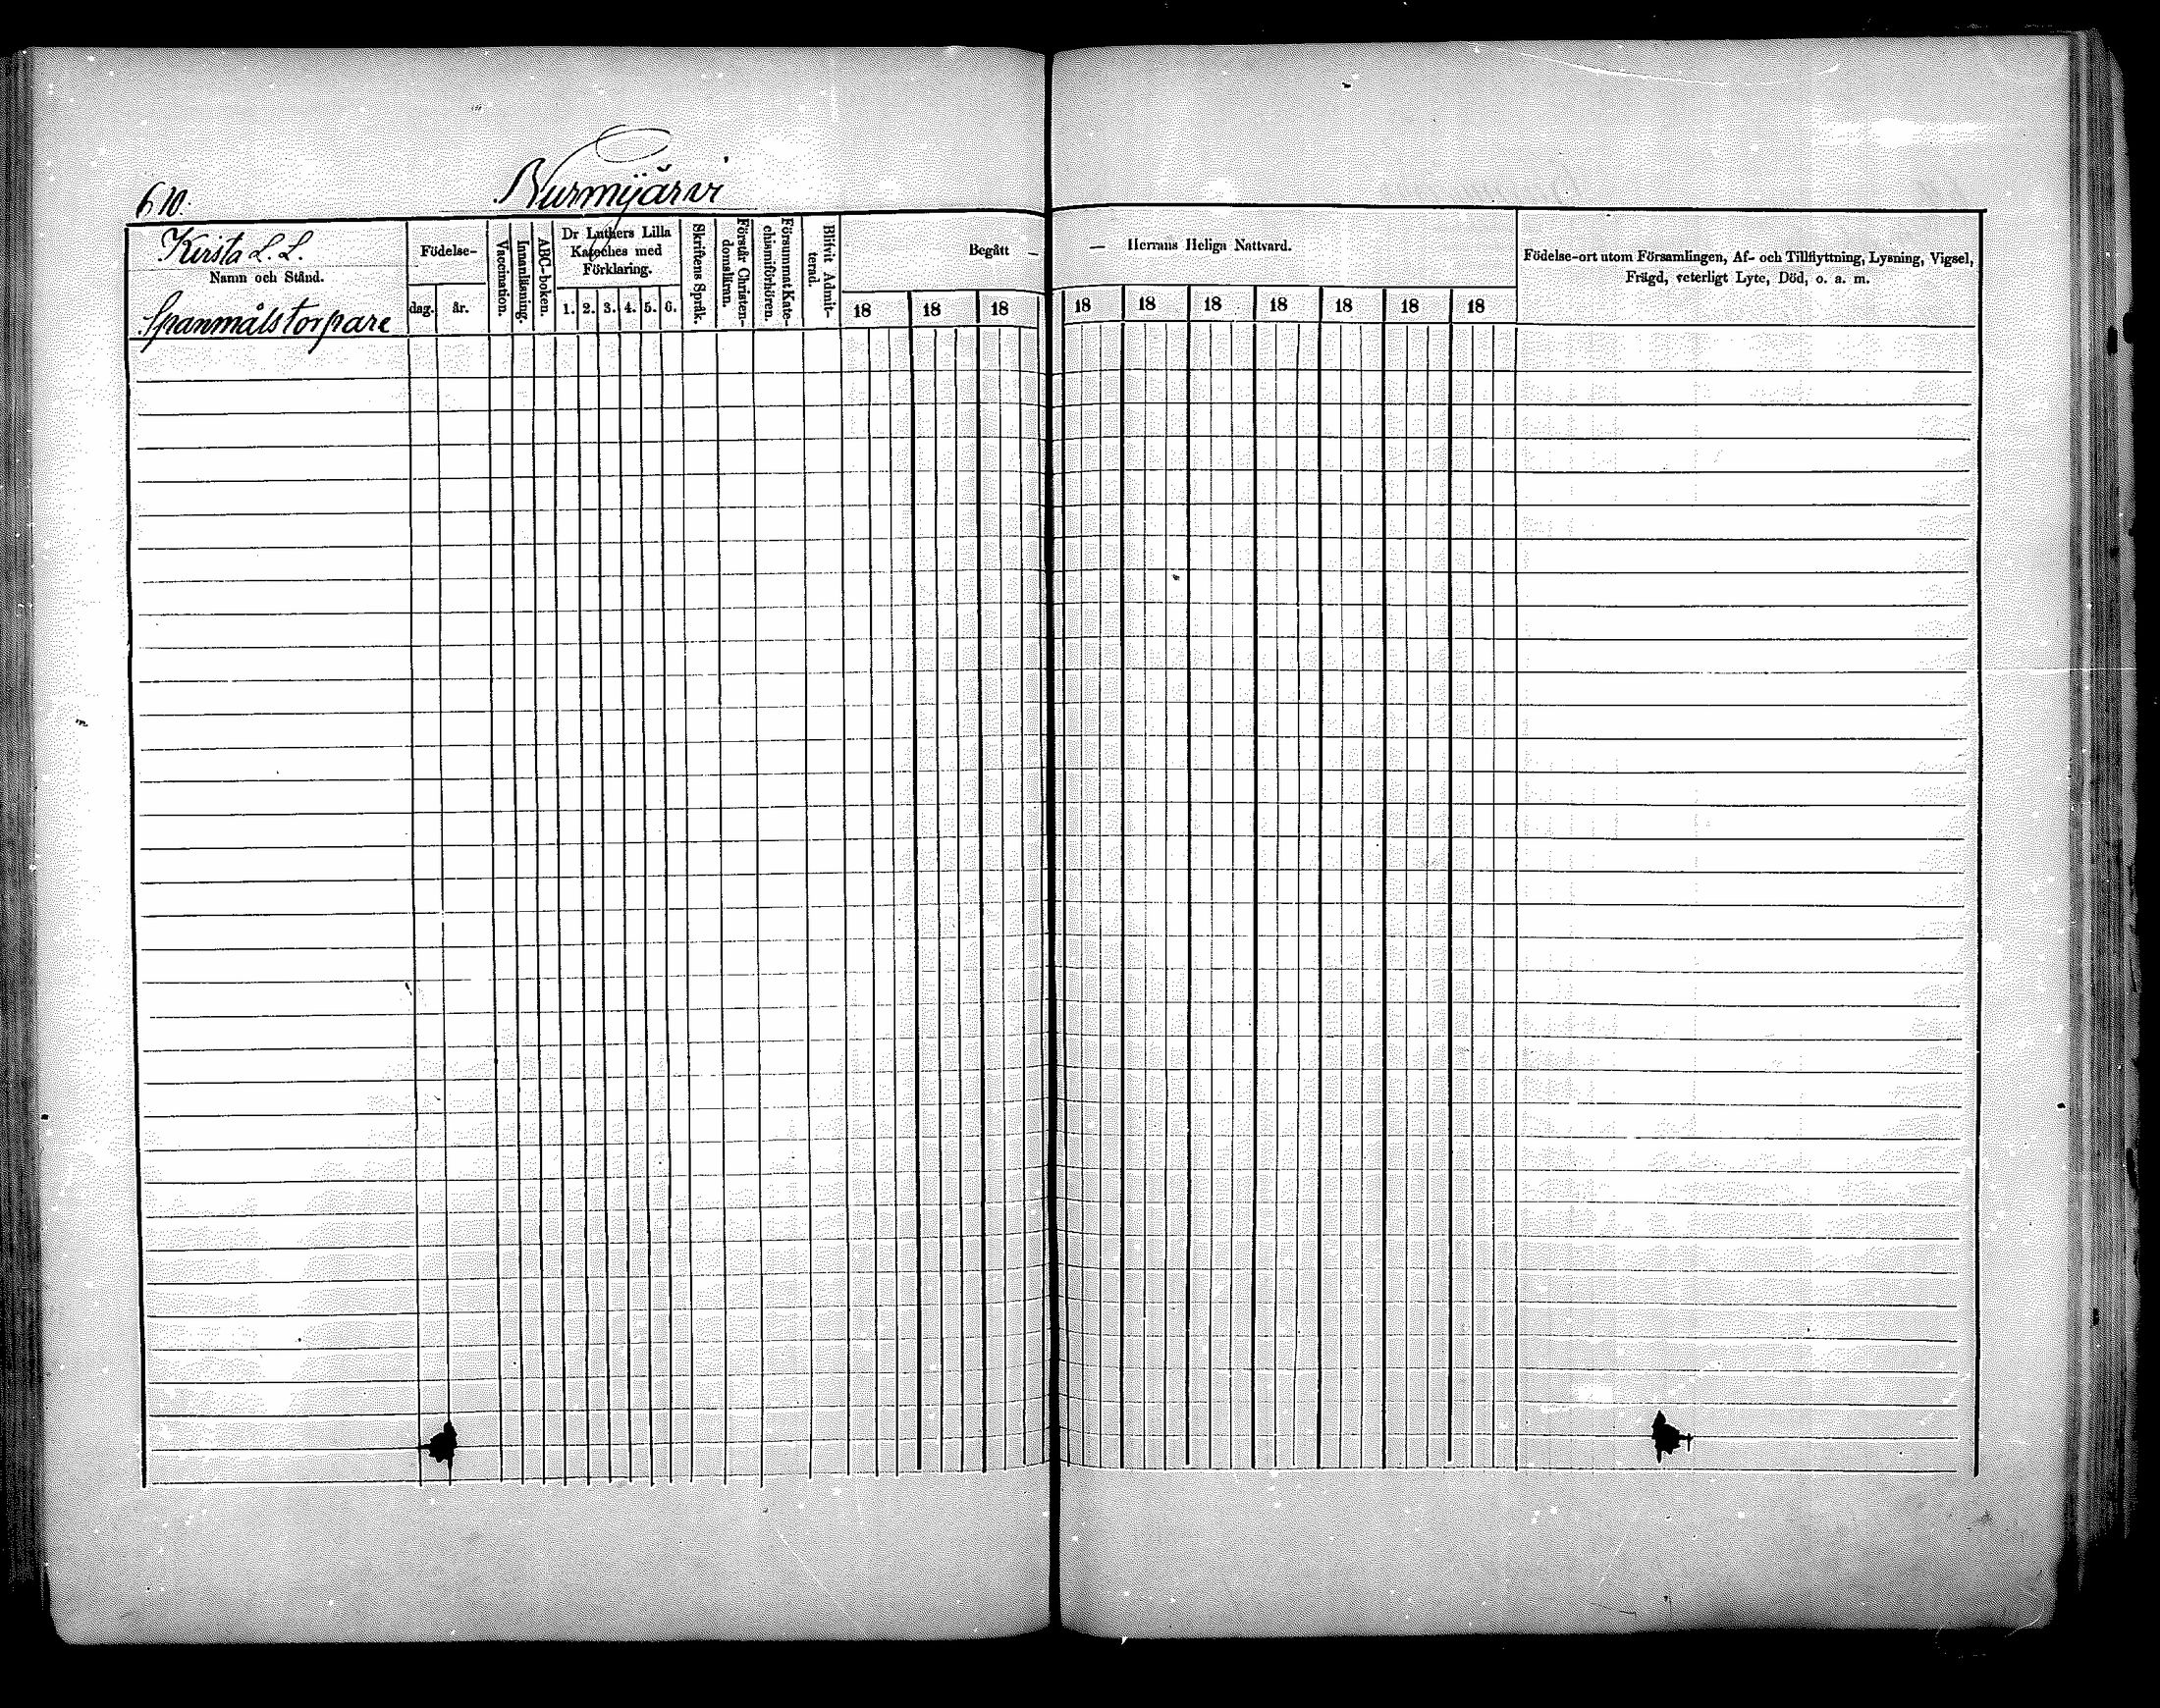 610.
Nurmijärvi
Kirsta L. L.
Namn och Stånd.
Spanmålstorpare
Födelse-
dag. år.
Vaccination.
Innanläsning.
ABC-boken.
Dr Luthers Lilla
Kateches med
Förklaring.
1. 2. 3. 4. 5. 6.
Skriftens Språk.
Förstår Christen-
domsläran.
Försummat Kate-
chismiförhören.
Blifvit Admit-
terad.
Begått —
18 18 18
— Herrans Heliga Nattvard.
18 18 18 18 18 18 18
Födelse-ort utom Församlingen, Af- och Tillflyttning, Lysning, Vigsel,
Frägd, veterligt Lyte, Död, o. a. m.